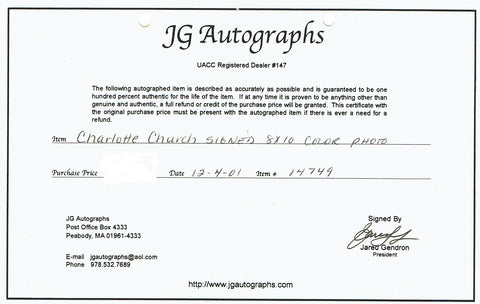 JG Autographs
UACC Registered Dealer #147
The following autographed item is described as accurately as possible and is guaranteed to be one
hundred percent authentic for the life of the item. If at any time it is proven to be anything other than
genuine and authentic, a full refund or credit of the purchase price will be granted. This certificate with
the original purchase price must be present with the autographed item if there is ever a need for a
refund.
Item Charlotte Church SIGNED 8X10 COLOR PHOTO
Purchase Price Date 12-4-01 Item # 14749
JG Autographs
Post Office Box 4333
Peabody, MA 01961-4333
E-mail jgautographs@aol.com
Phone 978.532.7689
Signed By
Jared Gendron
President
http://www.jgautographs.com